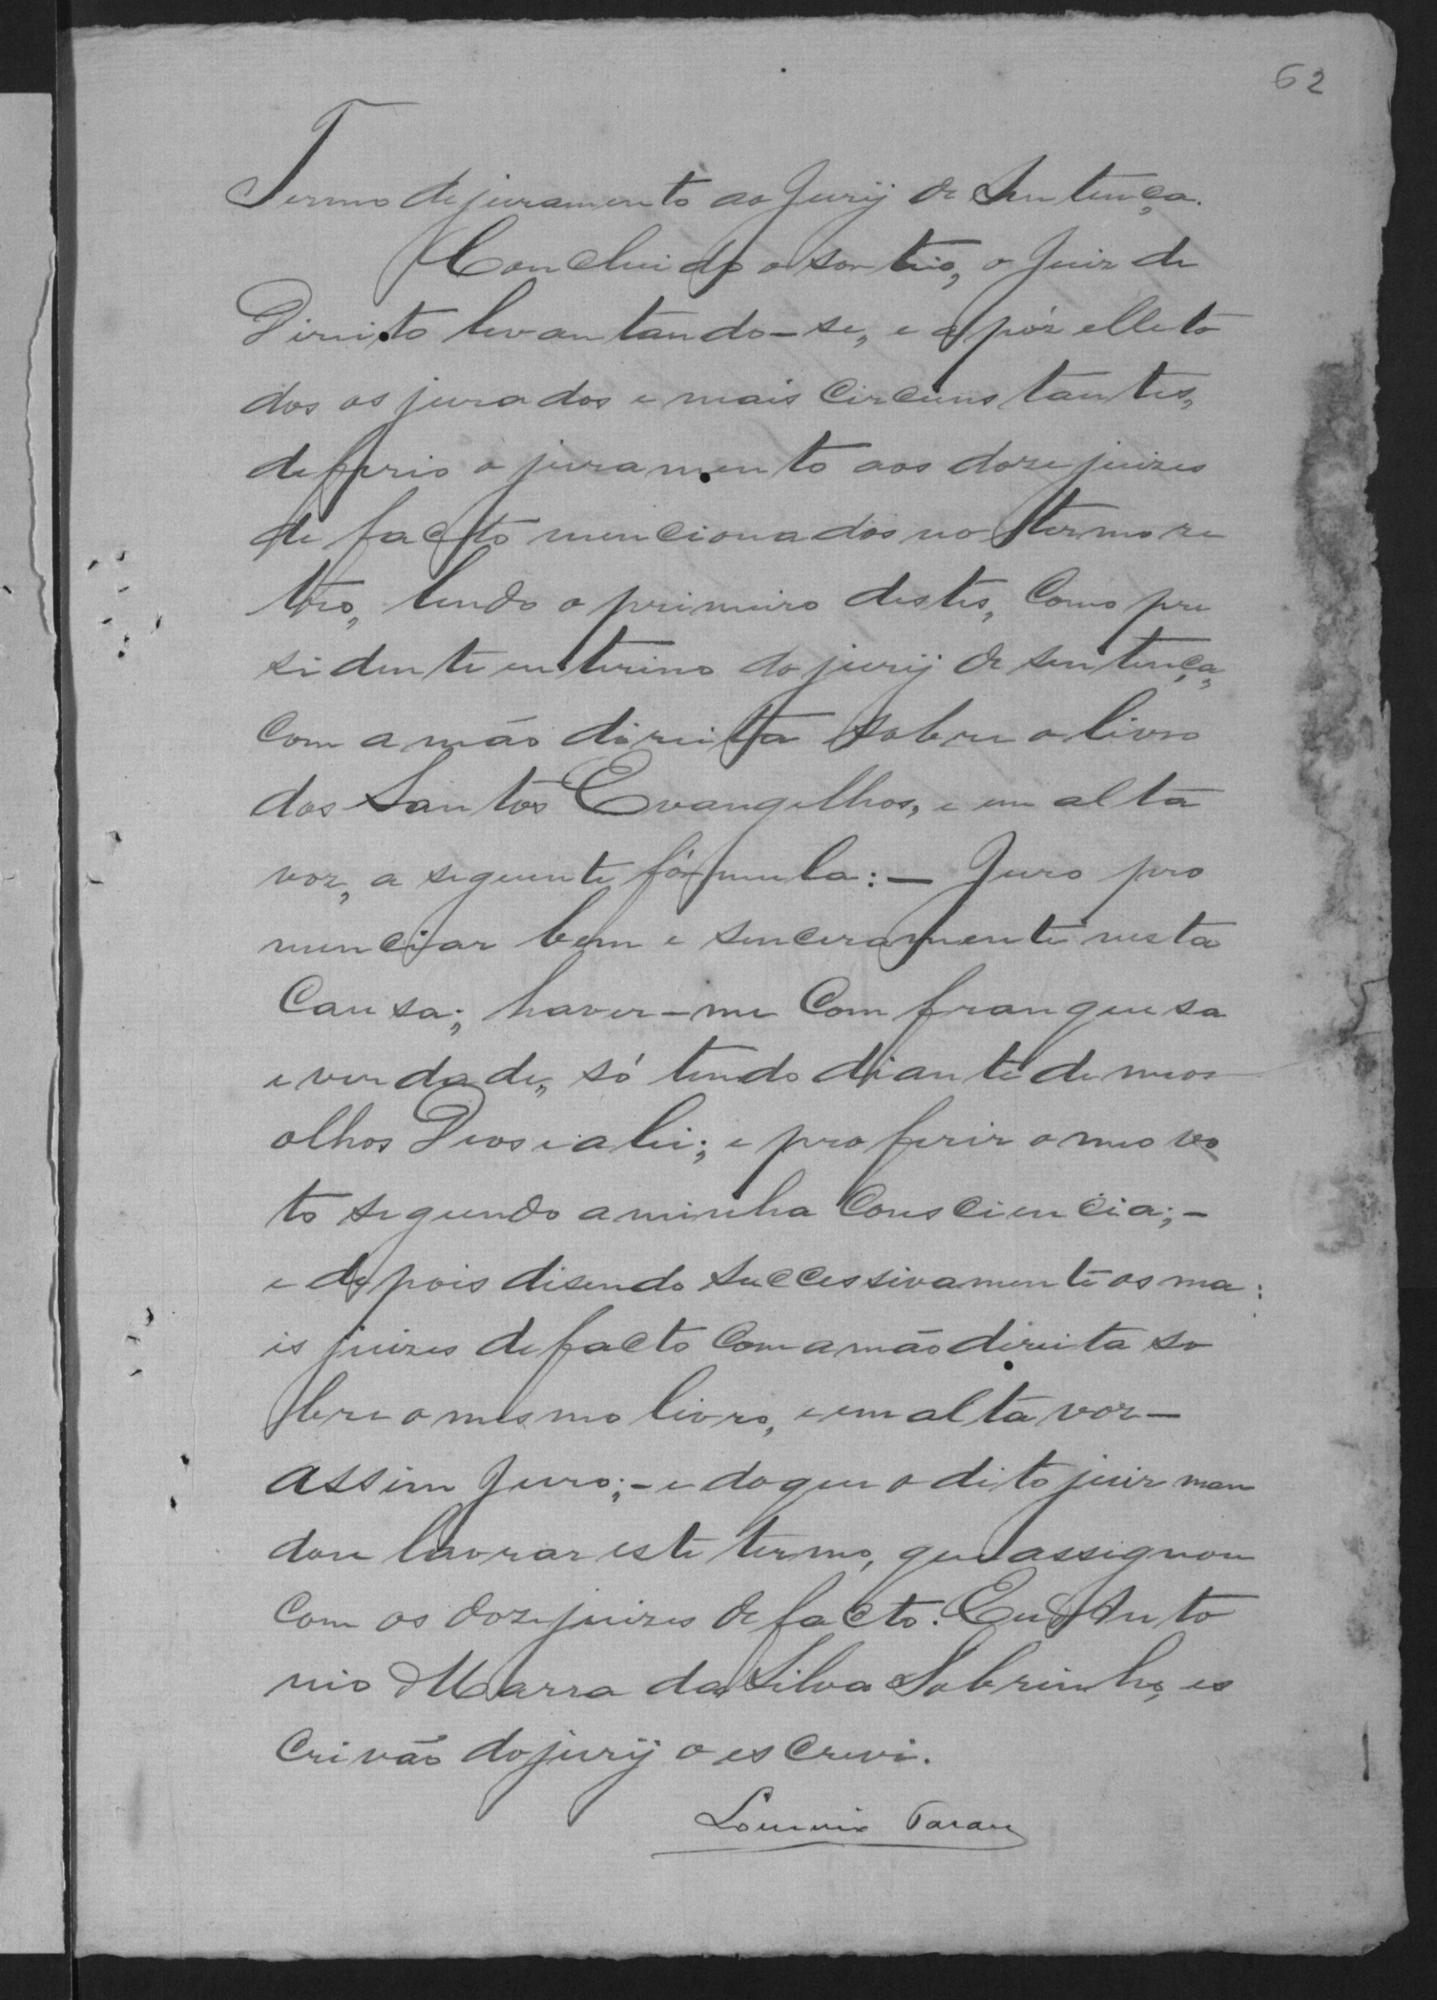 62
Termo de juramento ao Jury de Sentença.
Concluido o sorteio, o Juiz de
Direito levantando-se, e apóz elle to
dos os jurados e mais circunstantes,
deferio o juramento aos doze juizes
de facto mencionados no termo re
tro, lendo o primeiro destes, como pre
sidente enterino do jury de sentença,
com a mão direita sobre o livro
dos Santos Evangelhos, e em alta
voz, a seguente fórmula: — Juro pro
nunciar bem e sinceramente nesta
Causa; haver-me com franquesa
e verdade, só tendo diante de meos
olhos Deos e a lei; e proferir o meo vo
to segundo a minha consciencia; -
e depois disendo successivamente os ma:
is juizes de facto com a mão direita so
bre o mesmo livro, e em alta voz —
Assim Juro; - e do que o dito juiz man
dou lavrar este termo, que assignou
com os doze juizes de facto. Eu Anto
nio Marra da Silva Sobrinho, es
crivão do jury o escrevi.